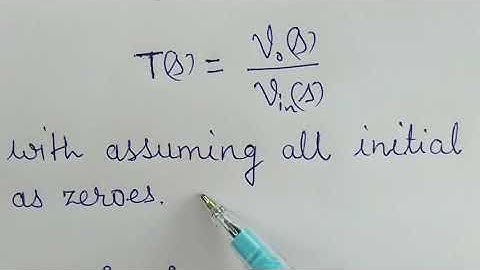 T(s) = V₀(s)
Vᵢₙ(s)
with assuming all initial
as zeroes.